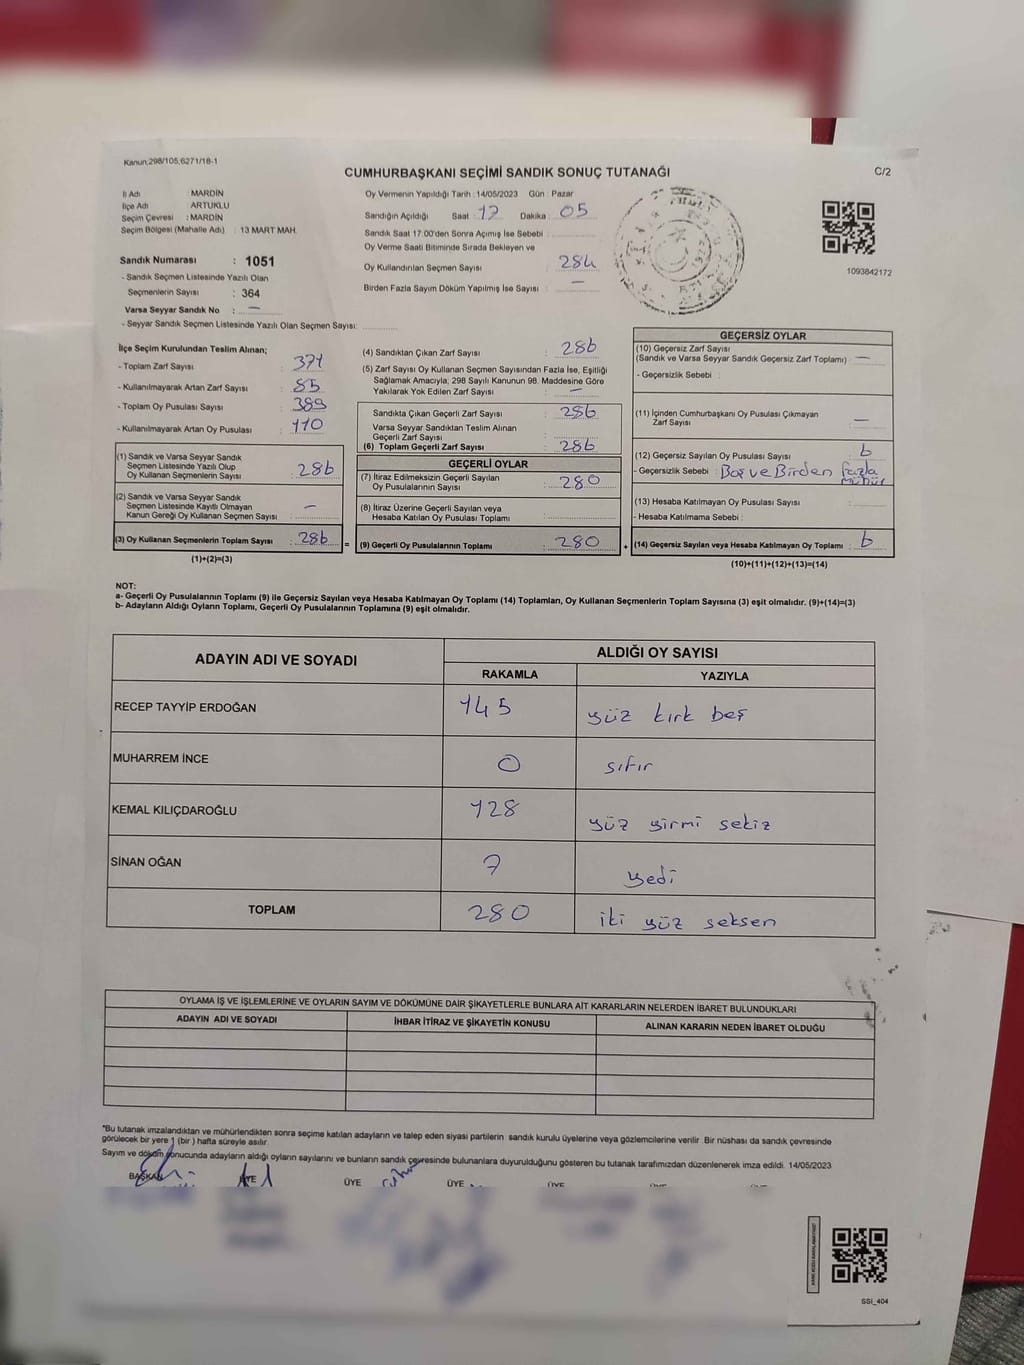 Kanun,298/105,6271/18-1
CUMHURBAŞKANI SEÇİMİ SANDIK SONUÇ TUTANAĞI
C/2
İl Adı : MARDİN
İlçe Adı : ARTUKLU
Seçim Çevresi : MARDİN
Seçim Bölgesi (Mahalle Adı) : 13 MART MAH.
Sandık Numarası : 1051
- Sandık Seçmen Listesinde Yazılı Olan
Seçmenlerin Sayısı : 364
Varsa Seyyar Sandık No : —
- Seyyar Sandık Seçmen Listesinde Yazılı Olan Seçmen Sayısı:
Oy Vermenin Yapıldığı Tarih : 14/05/2023 Gün : Pazar
Sandığın Açıldığı Saat : 17 Dakika : 05
Sandık Saat 17:00'den Sonra Açımış İse Sebebi :
Oy Verme Saati Bitiminde Sırada Bekleyen ve
Oy Kullandırılan Seçmen Sayısı :
Birden Fazla Sayım Döküm Yapılmış İse Sayısı : —
1093842172
İlçe Seçim Kurulundan Teslim Alınan;
- Toplam Zarf Sayısı : 371
- Kullanılmayarak Artan Zarf Sayısı : 85
- Toplam Oy Pusulası Sayısı : 389
- Kullanılmayarak Artan Oy Pusulası : 110
(1) Sandık ve Varsa Seyyar Sandık
Seçmen Listesinde Yazılı Olup
Oy Kullanan Seçmenlerin Sayısı : 286
(2) Sandık ve Varsa Seyyar Sandık
Seçmen Listesinde Kayıtlı Olmayan
Kanun Gereği Oy Kullanan Seçmen Sayısı : —
(3) Oy Kullanan Seçmenlerin Toplam Sayısı : 286 =
(1)+(2)=(3)
(4) Sandıktan Çıkan Zarf Sayısı : 286
(5) Zarf Sayısı Oy Kullanan Seçmen Sayısından Fazla İse, Eşitliği
Sağlamak Amacıyla; 298 Sayılı Kanunun 98. Maddesine Göre
Yakılarak Yok Edilen Zarf Sayısı : —
Sandıkta Çıkan Geçerli Zarf Sayısı : 286
Varsa Seyyar Sandıktan Teslim Alınan
Geçerli Zarf Sayısı :
(6) Toplam Geçerli Zarf Sayısı : 286
GEÇERLİ OYLAR
(7) İtiraz Edilmeksizin Geçerli Sayılan
Oy Pusulalarının Sayısı : 280
(8) İtiraz Üzerine Geçerli Sayılan veya
Hesaba Katılan Oy Pusulası Toplamı :
(9) Geçerli Oy Pusulalarının Toplamı : 280 +
GEÇERSİZ OYLAR
(10) Geçersiz Zarf Sayısı
(Sandık ve Varsa Seyyar Sandık Geçersiz Zarf Toplamı) : —
- Geçersizlik Sebebi :
(11) İçinden Cumhurbaşkanı Oy Pusulası Çıkmayan
Zarf Sayısı : —
(12) Geçersiz Sayılan Oy Pusulası Sayısı : 6
- Geçersizlik Sebebi : Boş ve Birden fazla
mühür
(13) Hesaba Katılmayan Oy Pusulası Sayısı :
- Hesaba Katılmama Sebebi :
(14) Geçersiz Sayılan veya Hesaba Katılmayan Oy Toplamı : 6
(10)+(11)+(12)+(13)=(14)
NOT:
a- Geçerli Oy Pusulalarının Toplamı (9) ile Geçersiz Sayılan veya Hesaba Katılmayan Oy Toplamı (14) Toplamları, Oy Kullanan Seçmenlerin Toplam Sayısına (3) eşit olmalıdır. (9)+(14)=(3)
b- Adayların Aldığı Oyların Toplamı, Geçerli Oy Pusulalarının Toplamına (9) eşit olmalıdır.
ADAYIN ADI VE SOYADI ALDIĞI OY SAYISI
RAKAMLA YAZIYLA
RECEP TAYYİP ERDOĞAN 145 yüz kırk beş
MUHARREM İNCE 0 sıfır
KEMAL KILIÇDAROĞLU 128 yüz yirmi sekiz
SİNAN OĞAN 7 yedi
TOPLAM 280 iki yüz seksen
OYLAMA İŞ VE İŞLEMLERİNE VE OYLARIN SAYIM VE DÖKÜMÜNE DAİR ŞİKAYETLERLE BUNLARA AİT KARARLARIN NELERDEN İBARET BULUNDUKLARI
ADAYIN ADI VE SOYADI İHBAR İTİRAZ VE ŞİKAYETİN KONUSU ALINAN KARARIN NEDEN İBARET OLDUĞU
*Bu tutanak imzalandıktan ve mühürlendikten sonra seçime katılan adayların ve talep eden siyasi partilerin sandık kurulu üyelerine veya gözlemcilerine verilir. Bir nüshası da sandık çevresinde
görülecek bir yere 1 (bir) hafta süreyle asılır.
Sayım ve döküm sonucunda adayların aldığı oyların sayılarını ve bunların sandık çevresinde bulunanlara duyurulduğunu gösteren bu tutanak tarafımızdan düzenlenerek imza edildi. 14/05/2023
BAŞKAN ÜYE ÜYE ÜYE ÜYE
SSI_404